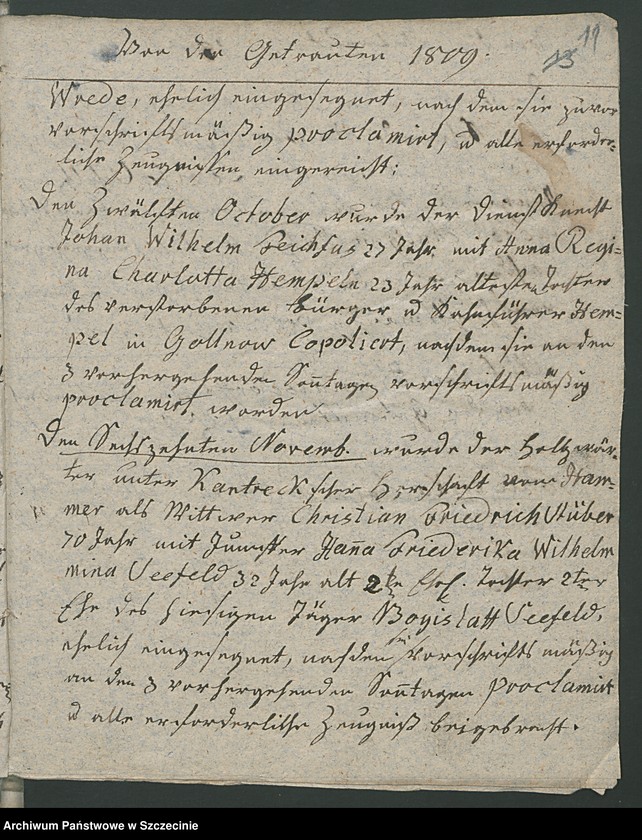 Von den Getrauten 1809.
11
13
Wrede, ehelich eingesegnet, nach dem sie zuvor
vorschriftsmäißig proclamirt, u alle erforder=
liche Zeugnissen eingereicht;
Den Zwölften October wurde der Dienst Knecht
Johan Wilhelm 27 Jahr mit Anna Regi=
na Charlotta Hempeln 23 Jahr älteste Tochter
des verstorbenen bürger u Kahnführer Hem=
pel in Gollnow Copolirt, nachdem sie an den
3 vorhergehenden Sonntagen vorschriftsmäßig
proclamirt worden
Den Sechszehnten Novemb. wurde der Holtzwär=
ter unter Kantreck scher Herschaft vom Ham=
mer als Wittwer Christian Friedrich Stüber
70 Jahr mit Jungfer Hanna Friederika Wilhelm
mina Seefeld 32 Jahr alt 2te Ehel. Tochter 2ter
Ehe des hiesigen Jäger Bogislaff Seefeld,
ehelich eingesegnet, nachdem sie vorschriftsmäßig
an den 3 vorhergehenden Sonntagen proclamirt
u alle erforderliche Zeugniß beigebracht.
Archiwum Państwowe w Szczecinie